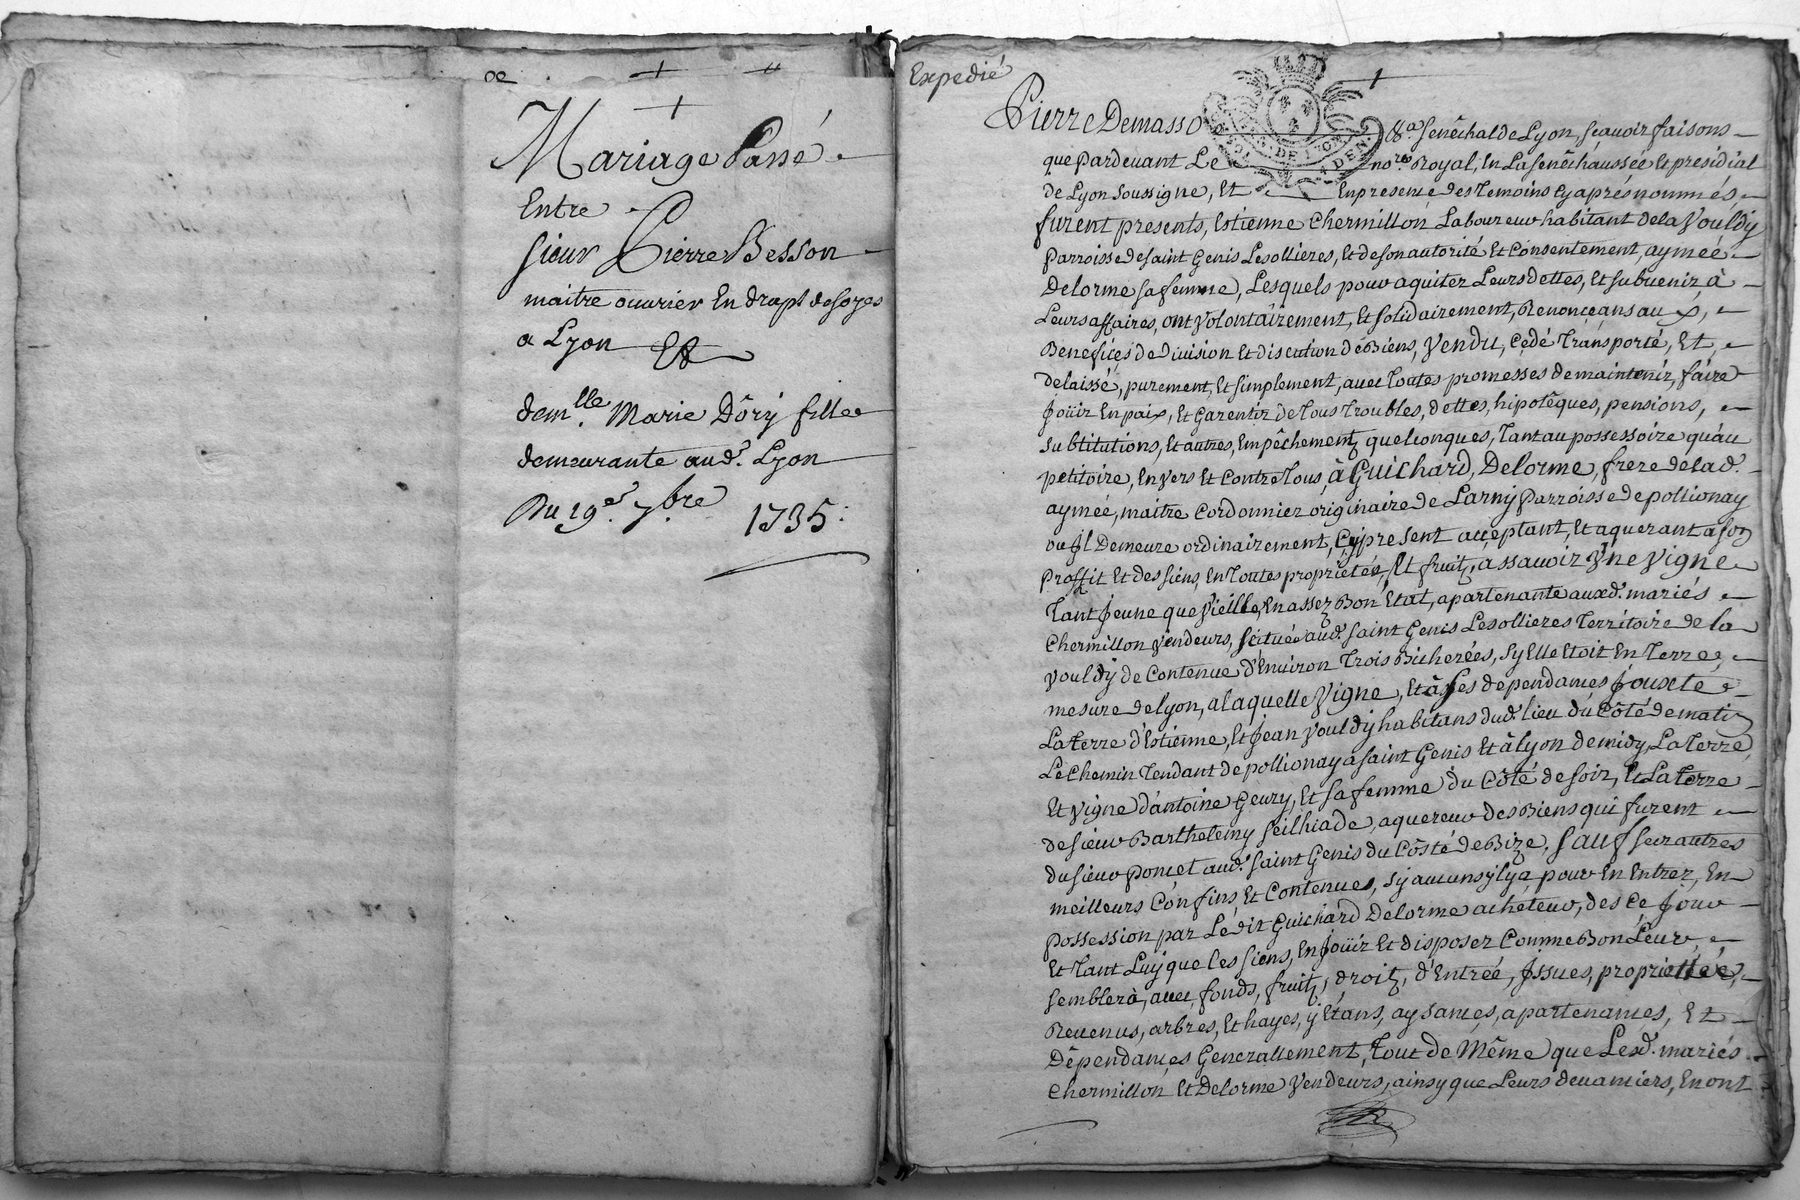 Mariage Passé
Entre
sieur Pierre Besson
maitre ouvrier En drapt de soyes
a Lyon Et
dem.lle Marie Dôrÿ fille
demeurante aud.t Lyon
Du 19.e 7.bre 1735.
Expedié
Pierre Demasso &.a Senêchal de Lyon, sçauoir faisons
que Pardeuant Le no.re Royal, En La Senêchaussée Et presidial
de Lyon soussigne, Et En presence des Temoins cy aprés nommés,
furent presents, Estienne Chermillon Laboureur habitant de la Vouldÿ
Parroisse de saint Genis Lesollieres, Et de son autorité Et Consentement, aymée
Delorme sa femme, Lesquels pour aquiter Leurs dettes, Et subuenir, à
Leurs affaires, ont Volontairement, Et solidairement, Renonceans au
Benefices de diuision Et discution de Biens, Vendu, Cedé Transporté, Et
delaissé, purement, Et simplement, auec Toutes promesses de maintenir, faire
Joüir En paix, Et Garentir de Tous Troubles, dettes, hipotêques, pensions,
substitutions, Et autres, Empêchementz quelconques, Tant au possessoire qu'au
petitoire, Envers Et Contre Tous, à Guichard, Delorme, frere de lad.
aymée, maitre Cordonnier originaire de Larnÿ Parroisse de pollionay
ou Jl Demeure ordinairement, Cÿ present acceptant, Et aquerant a son
Proffit Et des siens, En Toutes proprietés, Et fruitz, assauoir Vne Vigne
Tant Jeune que Vieille, En assez Bon Etat, apartenante auxd. mariés
Chermillon Vendeurs, scituée aud. saint Genis Lesollieres Territoire de la
Vouldÿ de Contenue d'Enuiron Trois Bicherées, sy Elle Etoit En Terre,
mesure de Lyon, a laquelle Vigne, Et à ses dependances Jouxte
La terre d'Estienne, Et Jean Vouldÿ habitans dud. lieu du Côté de matin
Le Chemin Tendant de pollionay à saint Genis Et à Lyon de midy, La Terre
Et Vigne d'antoine Geury, Et sa femme du Côté de soir, Et La Terre
de sieur Barthelemy Seilhiade, aquereur des Biens qui furent
du sieur Poncet aud. saint Genis du Côsté de Bize, Sauf ses autres
meilleurs Confins, Et Contenues, sÿ aucuns ÿ lÿ a, pour En Entrer, En
Possession par Lédit Guichard Delorme achêteur, dés Ce Jour
Et Tant Luÿ que les siens, En Joüir Et disposer Comme Bon Leur
semblera, auec, fonds, fruitz, droitz, d'Entrée, Jssues, proprietée,
Reuenus, arbres, Et hayes, ÿ Etans, aysances, apartenances, Et
Dêpendances Generallement, Tout de Même que Lesd. mariés
Chermillon Et Delorme Vendeurs, ainsy que Leurs deuanciers, En ont